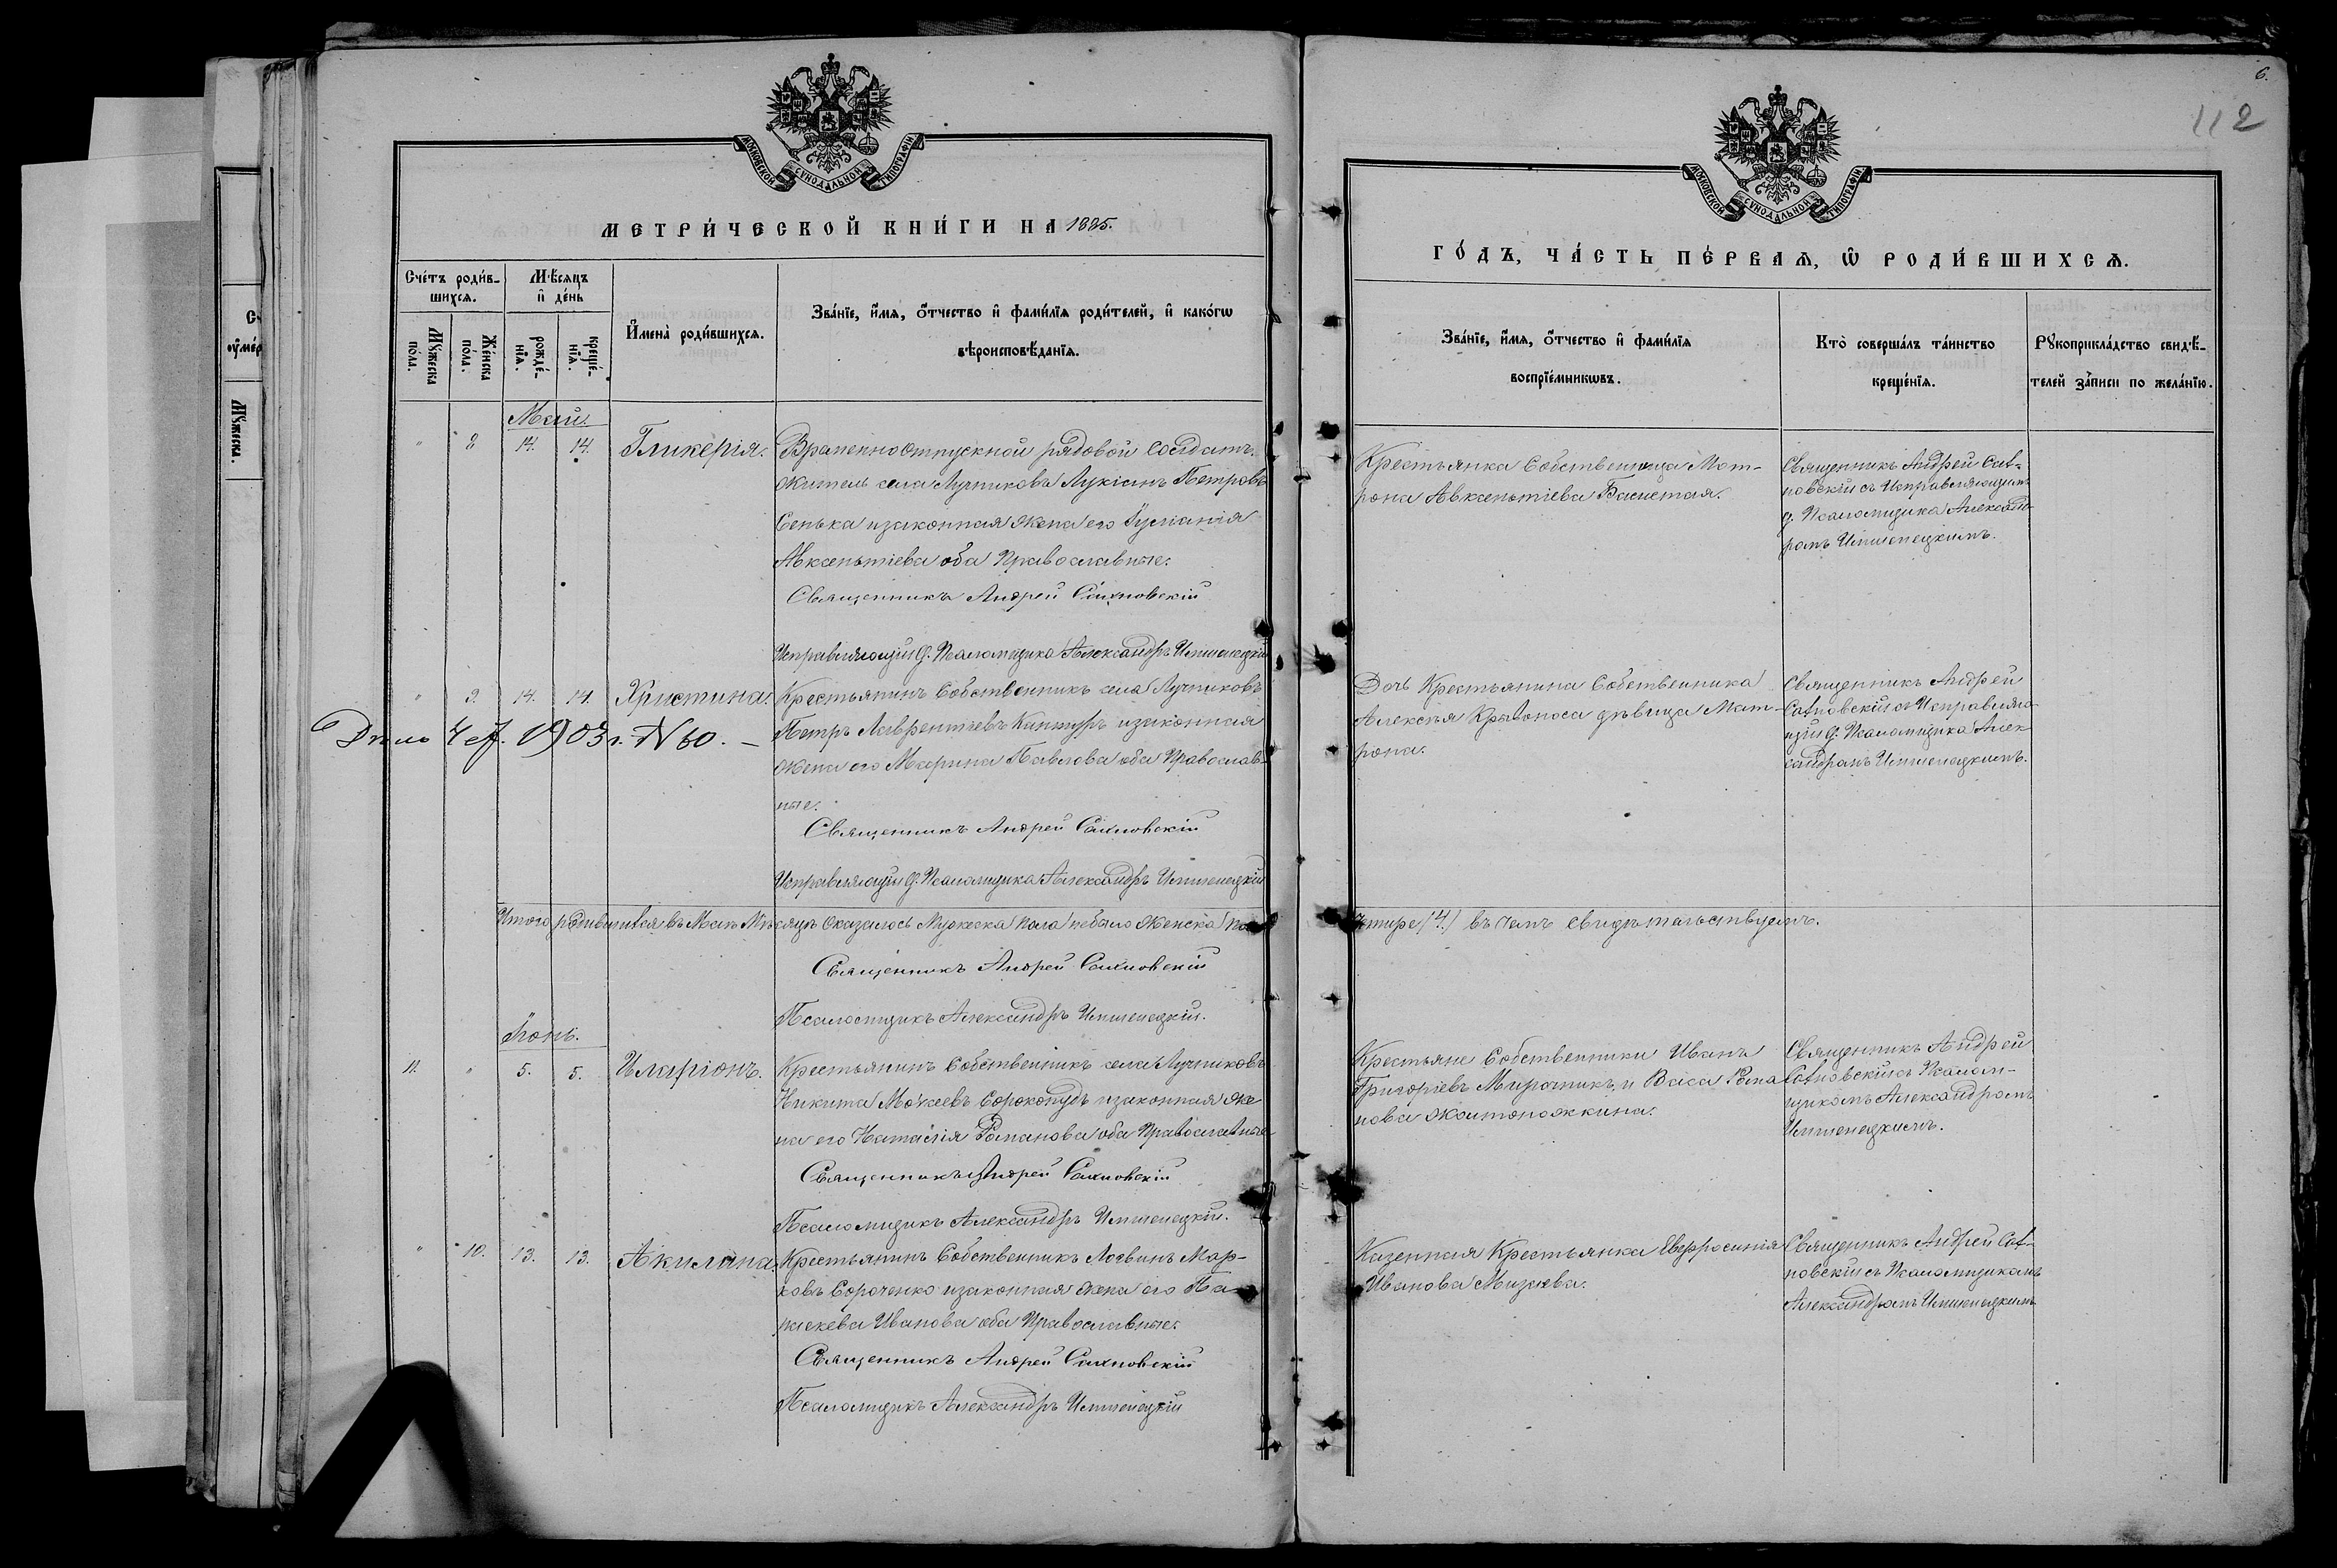 МОСКОВСКОЙ СѴНОДАЛЬНОЙ ТИПОГРАФІИ
МЕТРИ́ЧЕСКОЙ КНИ́ГИ НА 1885.
Сче́тъ роди́в-
шихсѧ.
Мѣ́сяцъ
и҆ де́нь
Мꙋ́жеска
по́ла.
Же́нска
по́ла.
рожде́-
нїѧ.
креще́-
нїѧ.
И҆мена̀ роди́вшихсѧ.
Зва́нїе, и҆́мѧ, ѻ҆́тчество и҆ фами́лїѧ роди́телей, и҆ како́гѡ
вѣроисповѣ́данїѧ.
Май.
" 2 14. 14. Гликерія.
Временно отпускной рядовой Солдатъ
житель села Лучниковъ Лукіанъ Петровъ
Сенька и законная жена его
Авксентіева оба Православные.
Священникъ Андрей Сахновскій
Исправляющій д. Псаломщика Александръ Имшенецкій
" 9. 14. 14. Христина.
Крестьянинъ Собственникъ села Лучниковъ
Петръ Лаврентіевъ Кантуръ и законная
жена его Марина Павлова оба Православ-
ные.
Дѣло 1903 г. N 60. –
Священникъ Андрей Сахновскій
Исправляющій д. Псаломщика Александръ Имшенецкій
Итого родившихся въ Маѣ Мѣсяцѣ оказалось Мужеска пола небыло Женска
Священникъ Андрей Сахновскій
Псаломщикъ Александръ Имшенецкій.
Іюнь.
11. " 5. 5. Иларіонъ.
Крестьянинъ Собственникъ села Лучниковъ
Никита Мокеевъ Сорокопудъ и законная же
на его Наталія Романова оба Православные
Священникъ Андрей Сахновскій
Псаломщикъ Александръ Имшенецкій.
" 10. 13. 13. Акилина.
Крестьянинъ Собственникъ Логвинъ Мар-
ковъ Сороченко и законная жена его Па
раскева Иванова оба Православные.
Священникъ Андрей Сахновскій
Псаломщикъ Александръ Имшенецкій
6.
112
МОСКОВСКОЙ СѴНОДАЛЬНОЙ ТИПОГРАФІИ
ГО́ДЪ, ЧА́СТЬ ПЕ́РВАѦ, Ѡ҆ РОДИ́ВШИХСѦ.
Зва́нїе, и҆́мѧ, ѻ҆́тчество и҆ фами́лїѧ
воспрїе́мникѡвъ.
Кто̀ соверша́лъ та́инство
креще́нїѧ.
Рꙋкоприкла́дство свидѣ́-
телей за́писи по жела́нїю.
Крестьянка Собственница Мат-
рона Авксентіева
Священникъ Андрей Сах-
новскій съ Исправляющимъ
д. Псаломщика Александ
ромъ Имшенецкимъ.
Дочь Крестьянина Собственника
Алексѣя Кривоноса дѣвица Мат-
рона.
Священникъ Андрей
Сахновскій съ Исправляю
щій д. Псаломщика Алек
сандромъ Имшенецкимъ.
четыре /4./ въ чемъ свидѣтельствуемъ.
Крестьяне Собственники Иванъ
Григоріевъ Мирошникъ и Васса Рома
нова Жоитоножкина.
Священникъ Андрей
Сахновскій съ Псалом-
щикомъ Александромъ
Имшенецкимъ.
Казенная Крестьянка Евфросинія
Иванова
Священникъ Андрей Сах-
новскій съ Псаломщикомъ
Александромъ Имшенецкимъ